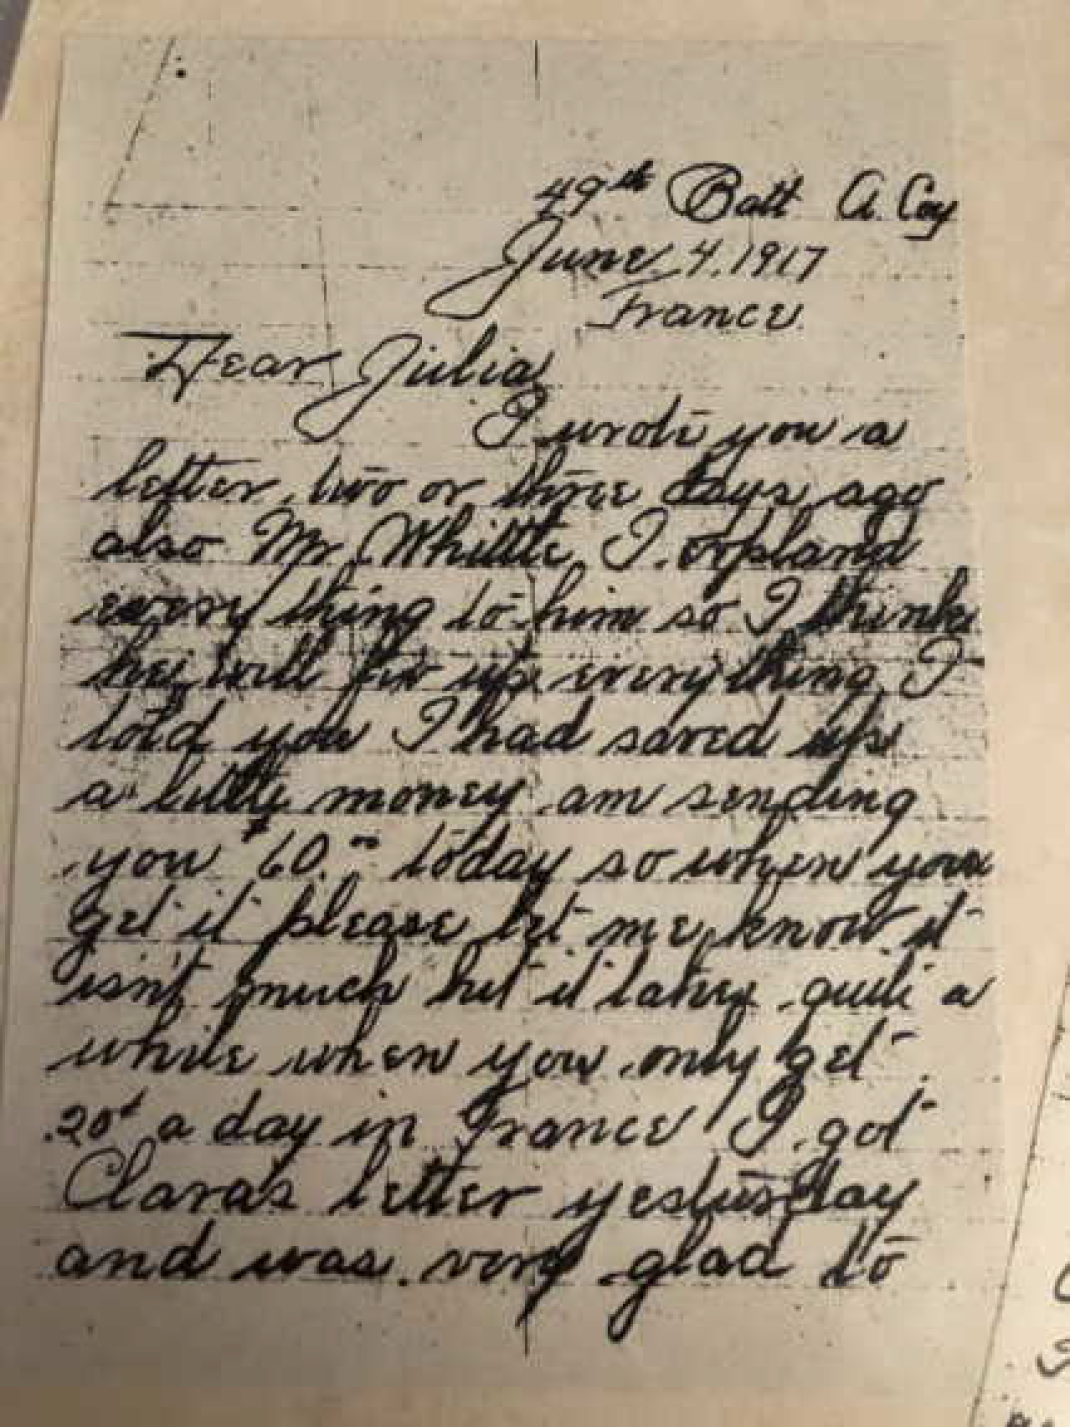 49th Batt A. Coy
June 4. 1917
France
Dear Julia
I wrote you a
letter two or three days ago
also Mr Whittle I expland
every thing to him so I think
he will fix up everything I
told you I had saved up
a little money am sending
you $60.00 today so when you
get it please let me know it
isn't much but it takes quite a
while when you only get
20¢ a day in France I got
Clara's letter yesturday
and was very glad to